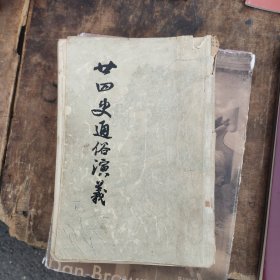 廿四史通俗演義
Dan Brow